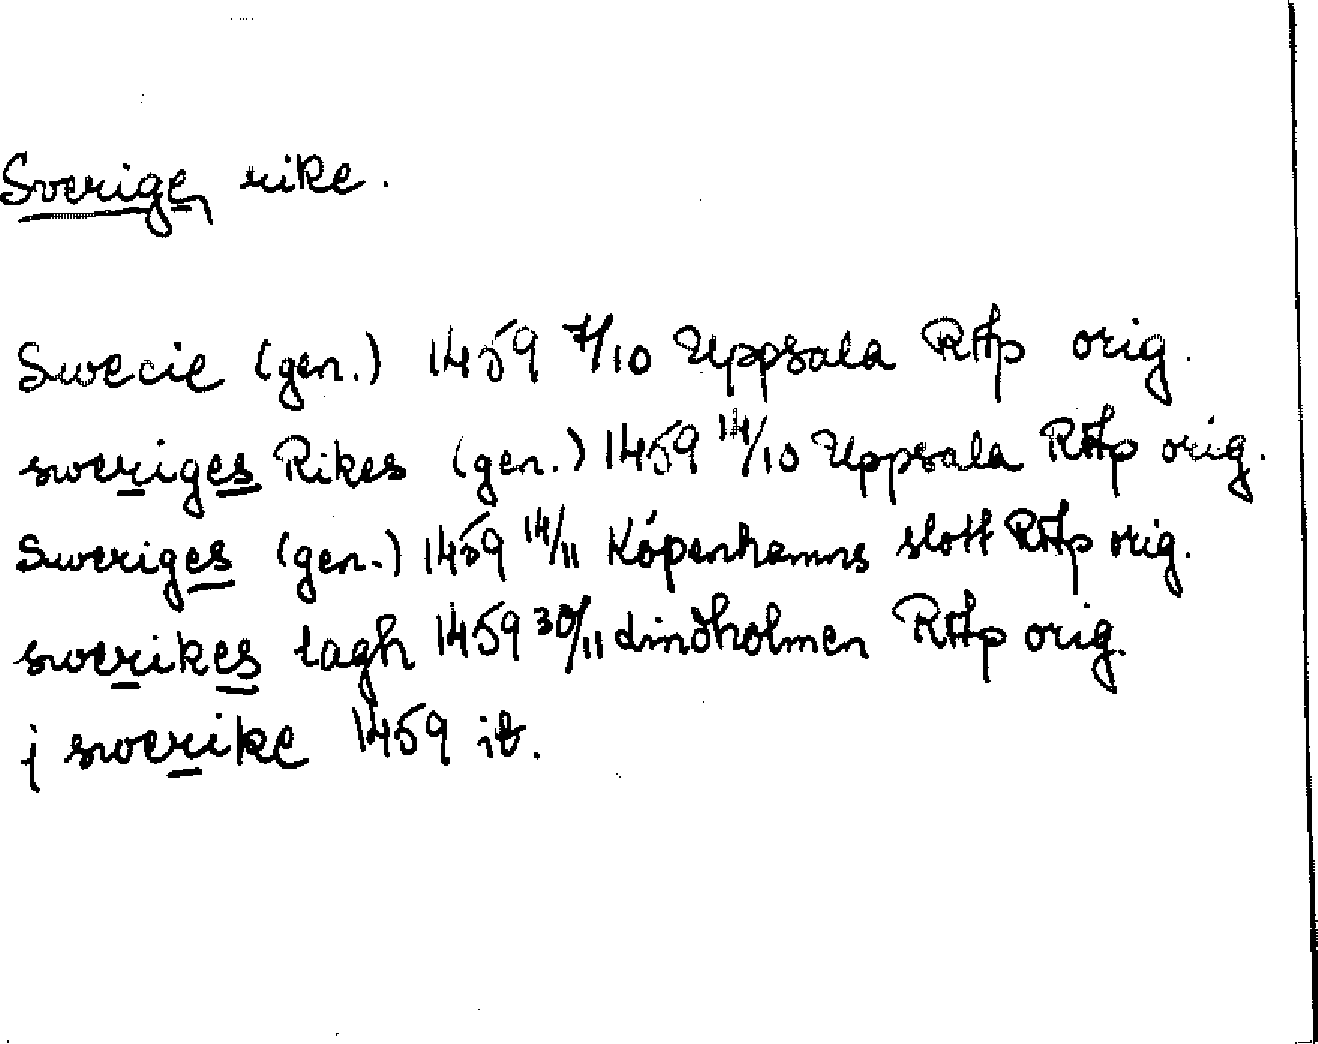 Sverige, rike.
Swecie (gen.) 1459 7/10 Uppsala RAp orig.
sweriges Rikes (gen.) 1459 14/10 Uppsala RAp orig.
Sweriges (gen.) 1459 14/11 Köpenhamns slott RAp orig.
swerikes lagh 1459 30/11 Lindholmen RAp orig.
j swerike 1459 ib.